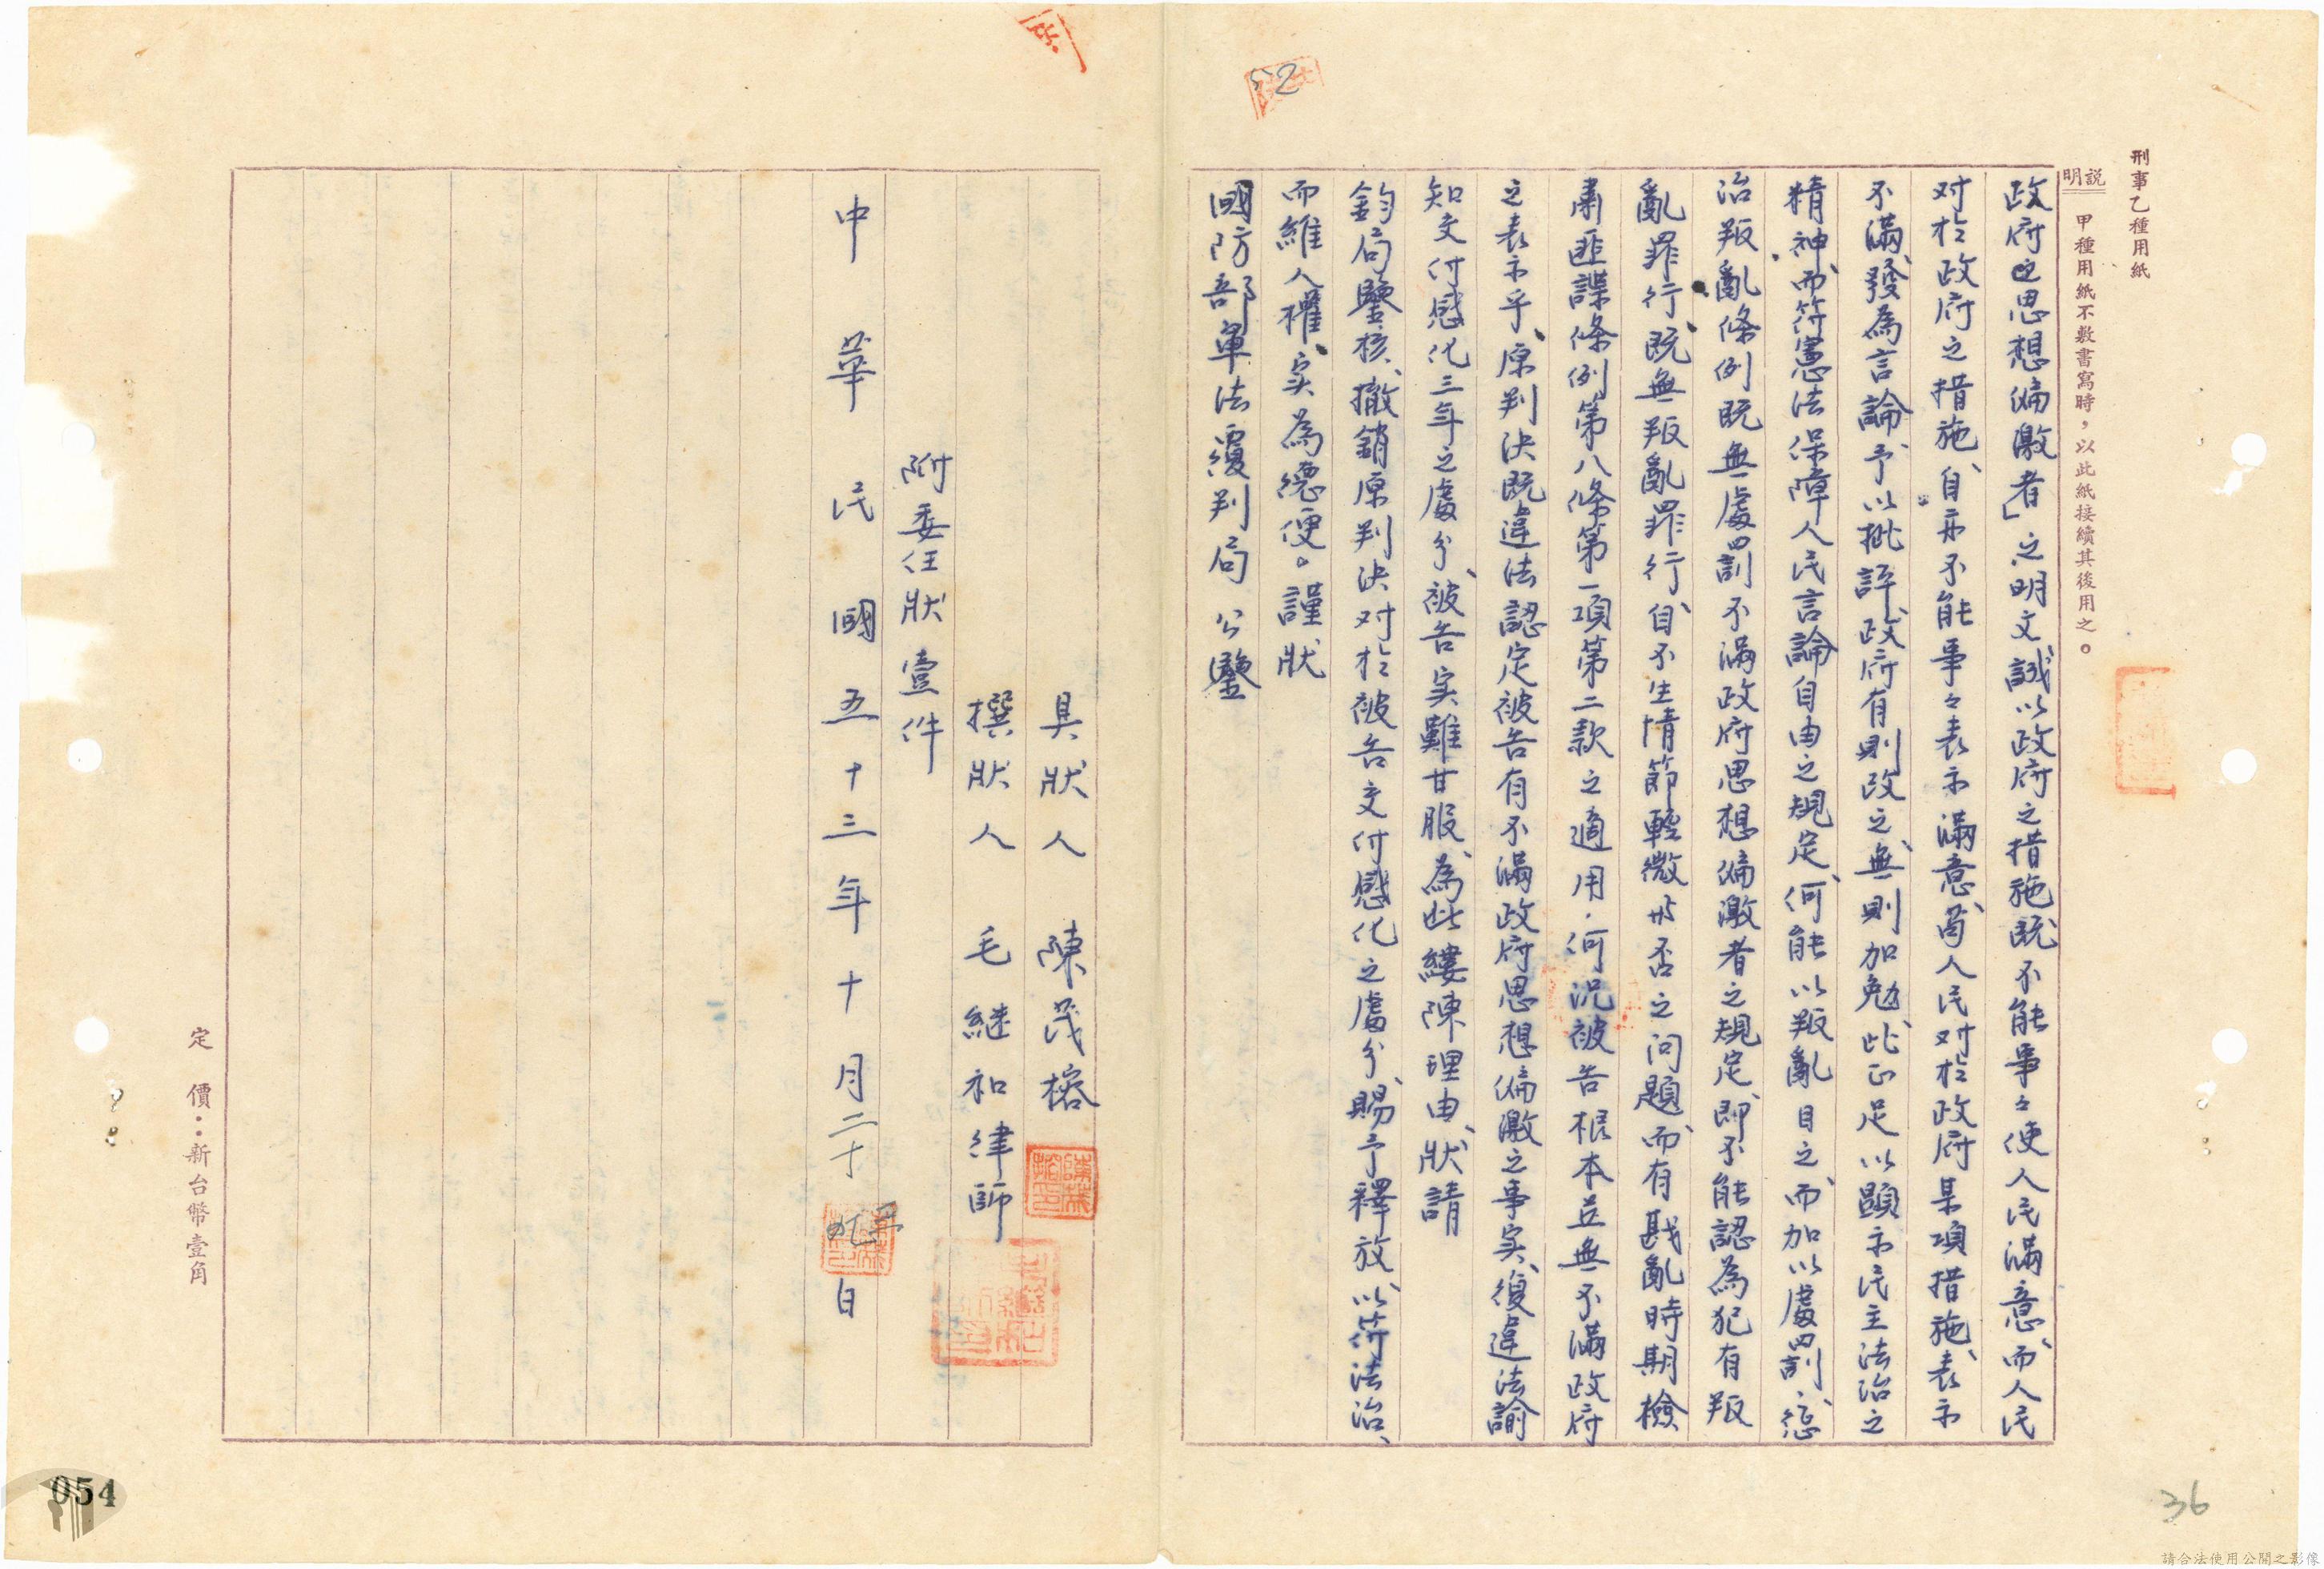 刑事乙種用紙
說明 甲種用紙不敷書寫時,以此紙接續其後用之。
52
政府之思想偏激者」之明文、誠以政府之措施既不能事々使人民滿意、而人民
对於政府之措施、自亦不能事々表示滿意、茍人民对於政府某項措施、表示
不滿、發為言論、予以批評、政府有則改之、無則加勉、此正足以顯示民主法治之
精神、而符憲法保障人民言論自由之規定、何能以叛亂目之、而加以處罰、懲
治叛亂條例既無處罰不滿政府思想偏激者之規定、即不能認為犯有叛
亂罪行、既無叛亂罪行、自不生情節輕微与否之问題、而有戡亂時期檢
肅匪諜條例第八條第一項第二款之適用.何況被告根本並無不滿政府
之表示乎、原判決既違法認定被告有不滿政府思想偏激之事实、復違法諭
知交付感化三年之處分、被告实難甘服、為此縷陳理由、狀請
鈞局鑒核、撤銷原判決对於被告交付感化之處分、賜予釋放、以符法治、
而維人權、实為德便。謹狀
國防部軍法覆判局 公鑒
具狀人 陳茂榕
撰狀人 毛継和律師
附委任狀壹件
中華民國五十三年十月二十日
定價:新台幣壹角
054
36
請合法使用公開之影像